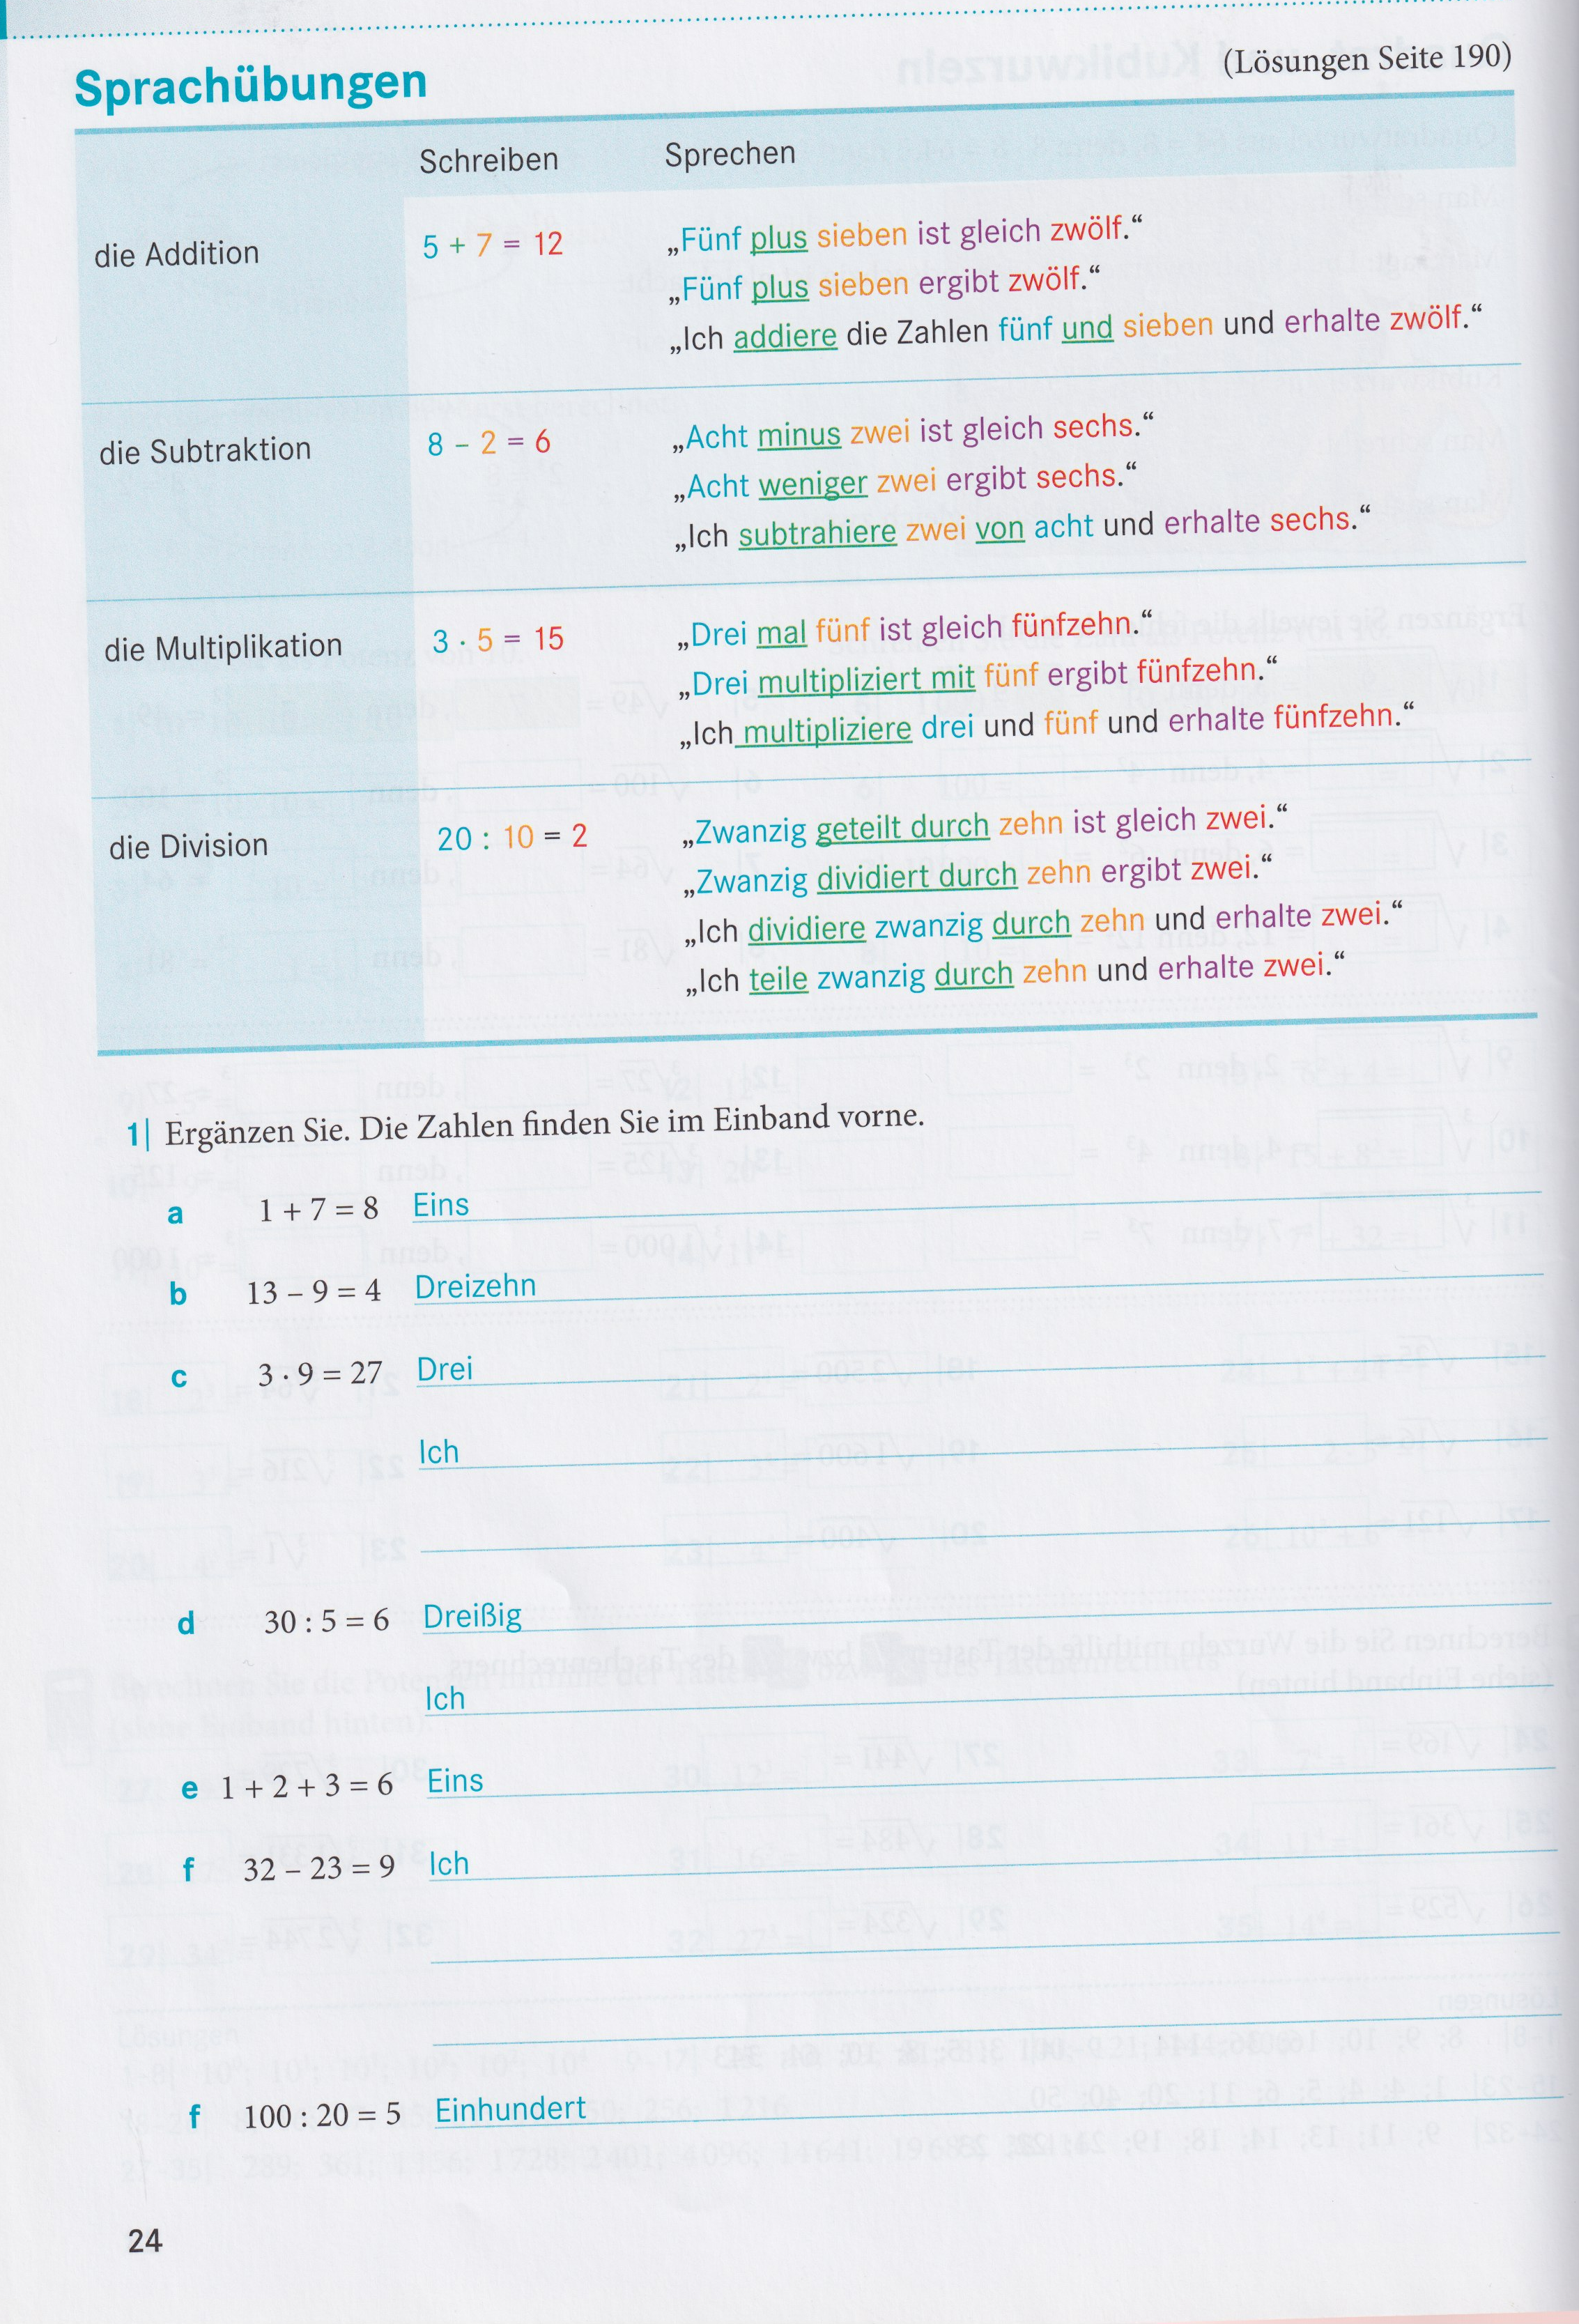 Sprachübungen (Lösungen Seite 190)
Schreiben Sprechen
die Addition 5 + 7 = 12 „Fünf plus sieben ist gleich zwölf.“
„Fünf plus sieben ergibt zwölf.“
„Ich addiere die Zahlen fünf und sieben und erhalte zwölf.“
die Subtraktion 8 – 2 = 6 „Acht minus zwei ist gleich sechs.“
„Acht weniger zwei ergibt sechs.“
„Ich subtrahiere zwei von acht und erhalte sechs.“
die Multiplikation 3 · 5 = 15 „Drei mal fünf ist gleich fünfzehn.“
„Drei multipliziert mit fünf ergibt fünfzehn.“
„Ich multipliziere drei und fünf und erhalte fünfzehn.“
die Division 20 : 10 = 2 „Zwanzig geteilt durch zehn ist gleich zwei.“
„Zwanzig dividiert durch zehn ergibt zwei.“
„Ich dividiere zwanzig durch zehn und erhalte zwei.“
„Ich teile zwanzig durch zehn und erhalte zwei.“
1| Ergänzen Sie. Die Zahlen finden Sie im Einband vorne.
a 1 + 7 = 8 Eins
b 13 – 9 = 4 Dreizehn
c 3 · 9 = 27 Drei
Ich
d 30 : 5 = 6 Dreißig
Ich
e 1 + 2 + 3 = 6 Eins
f 32 – 23 = 9 Ich
f 100 : 20 = 5 Einhundert
24